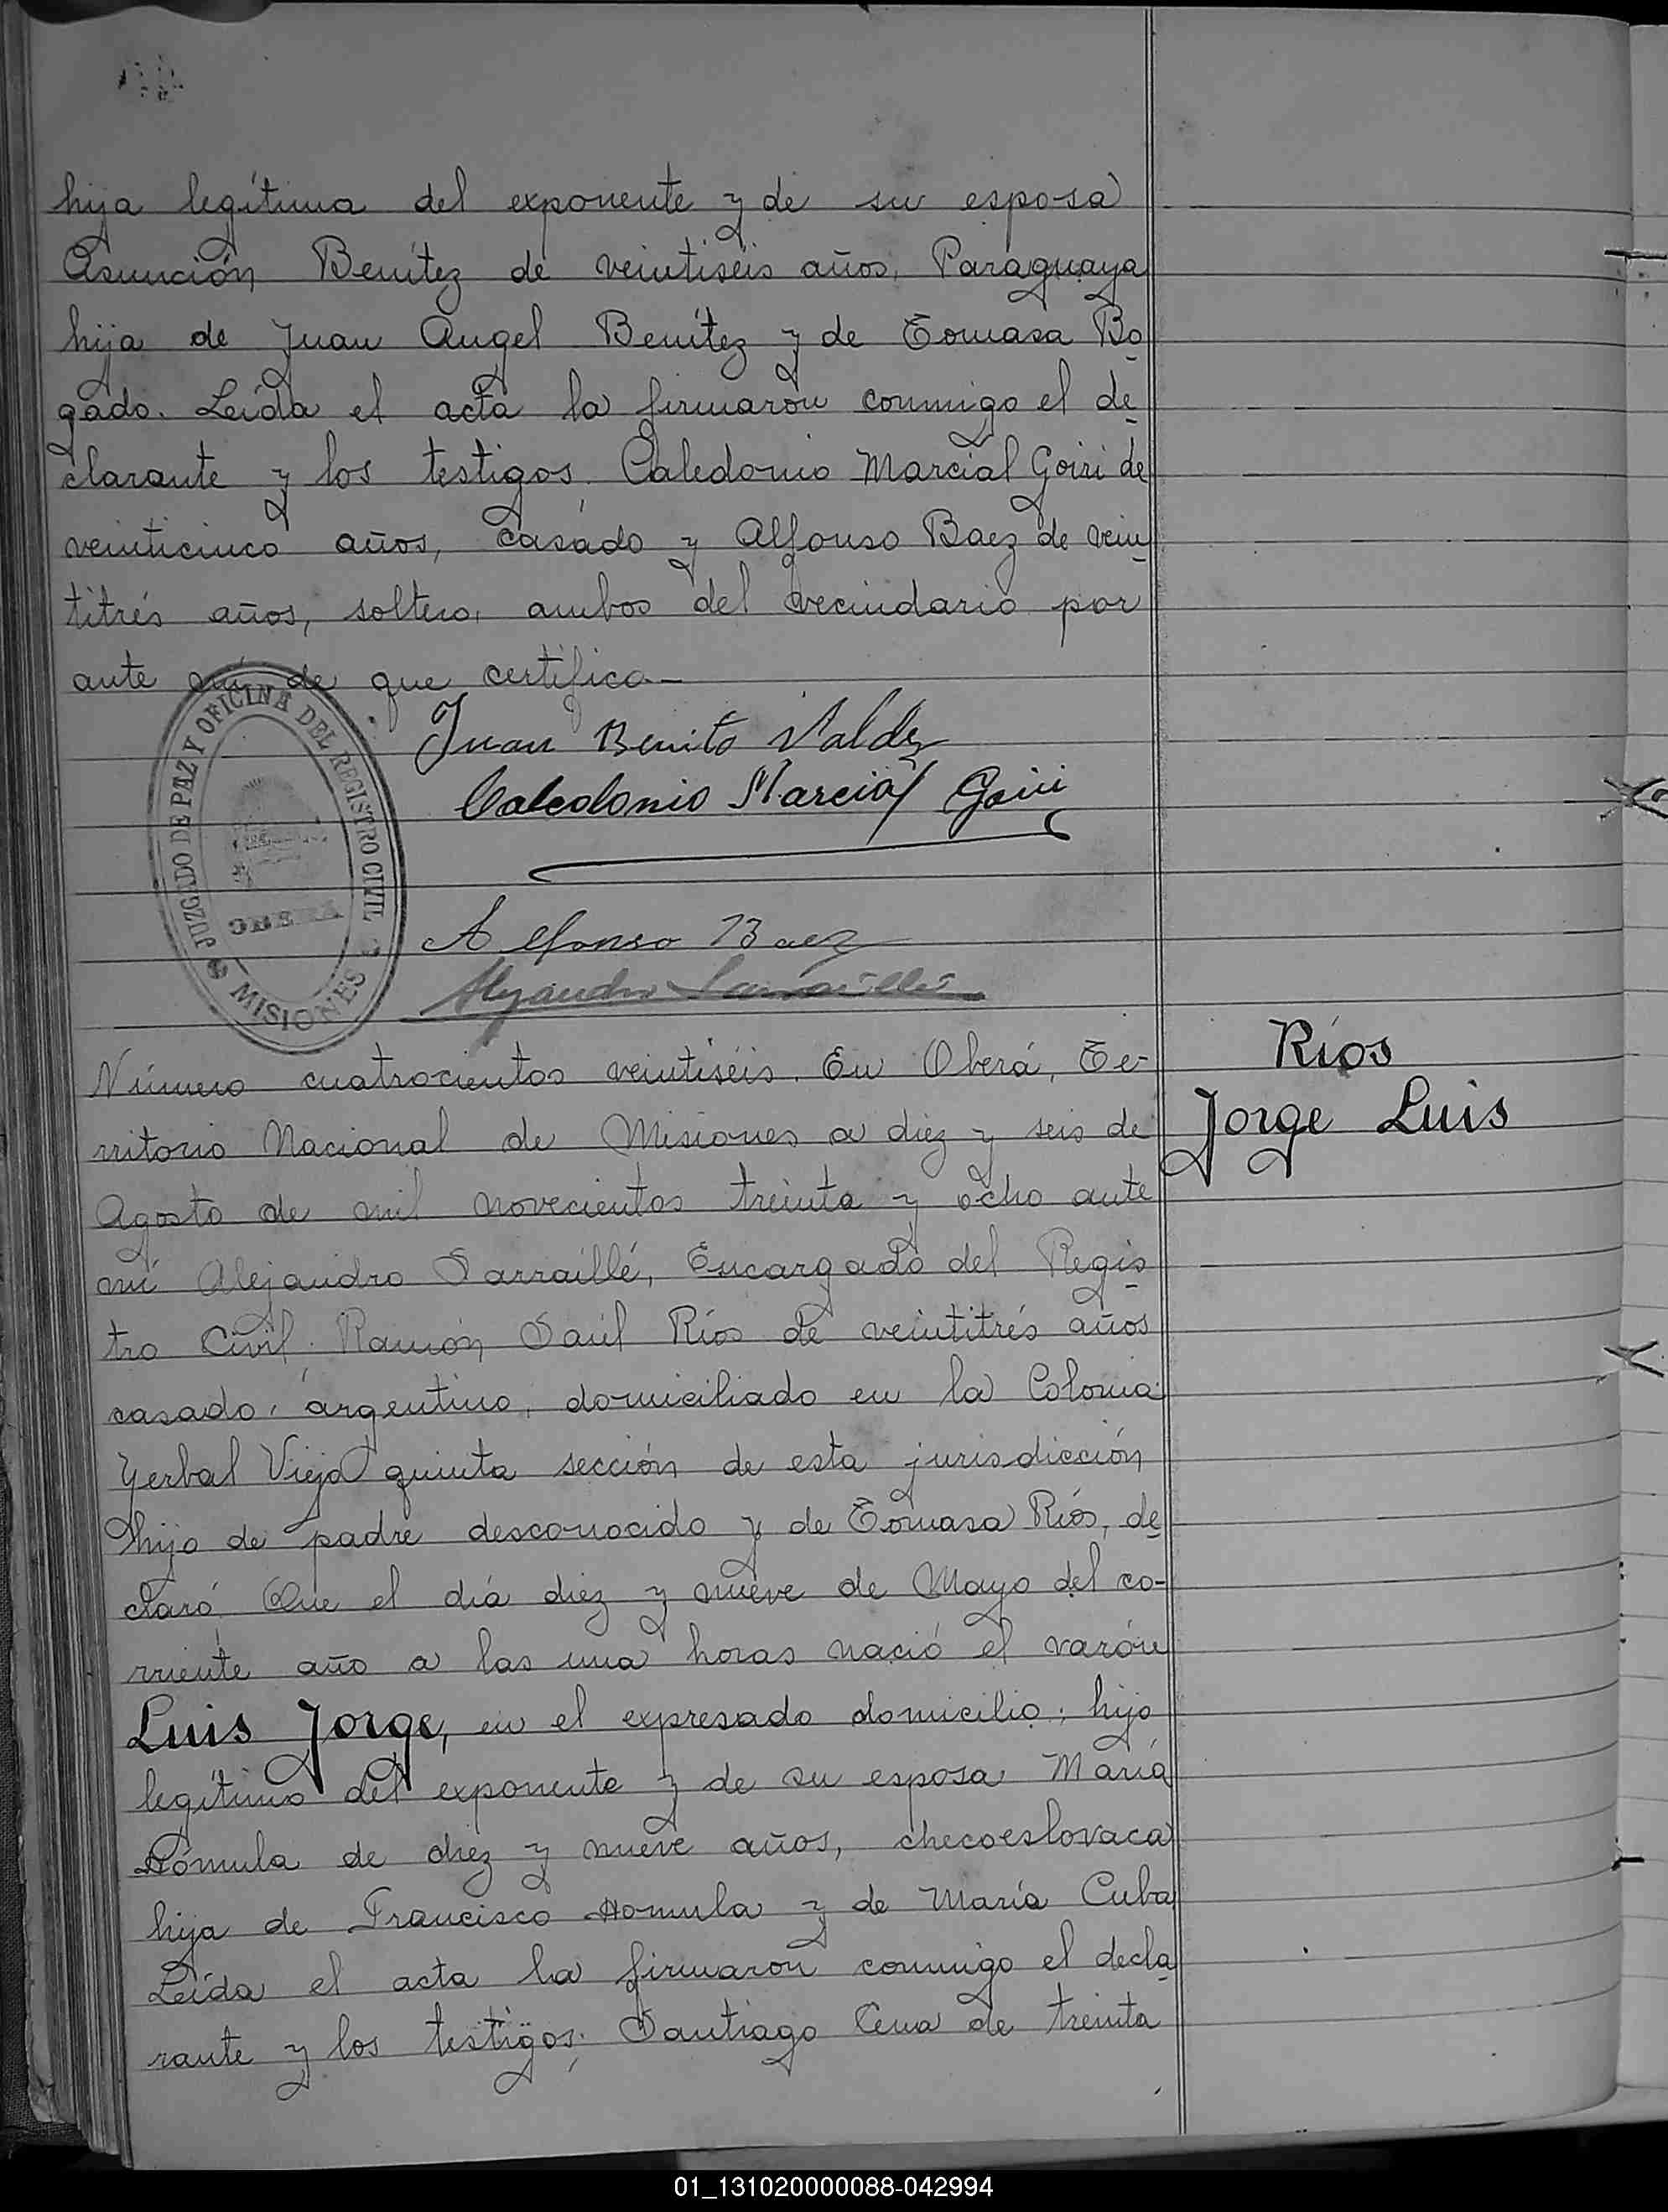 hija legítima del exponente y de su esposa
Asunción Benítez de veintiséis años, Paraguaya
hija de Juan Angel Benítez y de Tomasa Bo
gado. Leída el acta la firmaron conmigo el de
clarante y los testigos. Caledonio Marcial Goiri de
veinticinco años, casado y Alfonso Baez de vein
titrés años, soltero, ambos del vecindario por
ante mí de que certifico.—
JUZGADO DE PAZ Y OFICINA DEL REGISTRO CIVIL
MISIONES
Juan Benito Valdez
Calcedonio Marcial Goiri
Alfonso Baez
Alejandro Sarraillé
Número cuatrocientos veintiséis. En Oberá, Te-
rritorio Nacional de Misiones a diez y seis de
Agosto de mil novecientos treinta y ocho ante
mí Alejandro Sarraillé, Encargado del Regis
tro Civil. Ramón Saúl Ríos de veintitrés años
casado, argentino, domiciliado en la Colonia
Yerbal Viejo quinta sección de esta jurisdicción
hijo de padre desconocido y de Tomasa Ríos, de
claró. Que el día diez y nueve de Mayo del co-
rriente año a las una horas nació el varón
Luis Jorge, en el expresado domicilio; hijo
legítimo del exponente y de su esposa María
Homula de diez y nueve años, checoeslovaca
hija de Francisco Homula y de María Cuba
Leída el acta la firmaron conmigo el decla
rante y los testigos; Santiago de treinta
Ríos
Jorge Luis
01_131020000088-042994